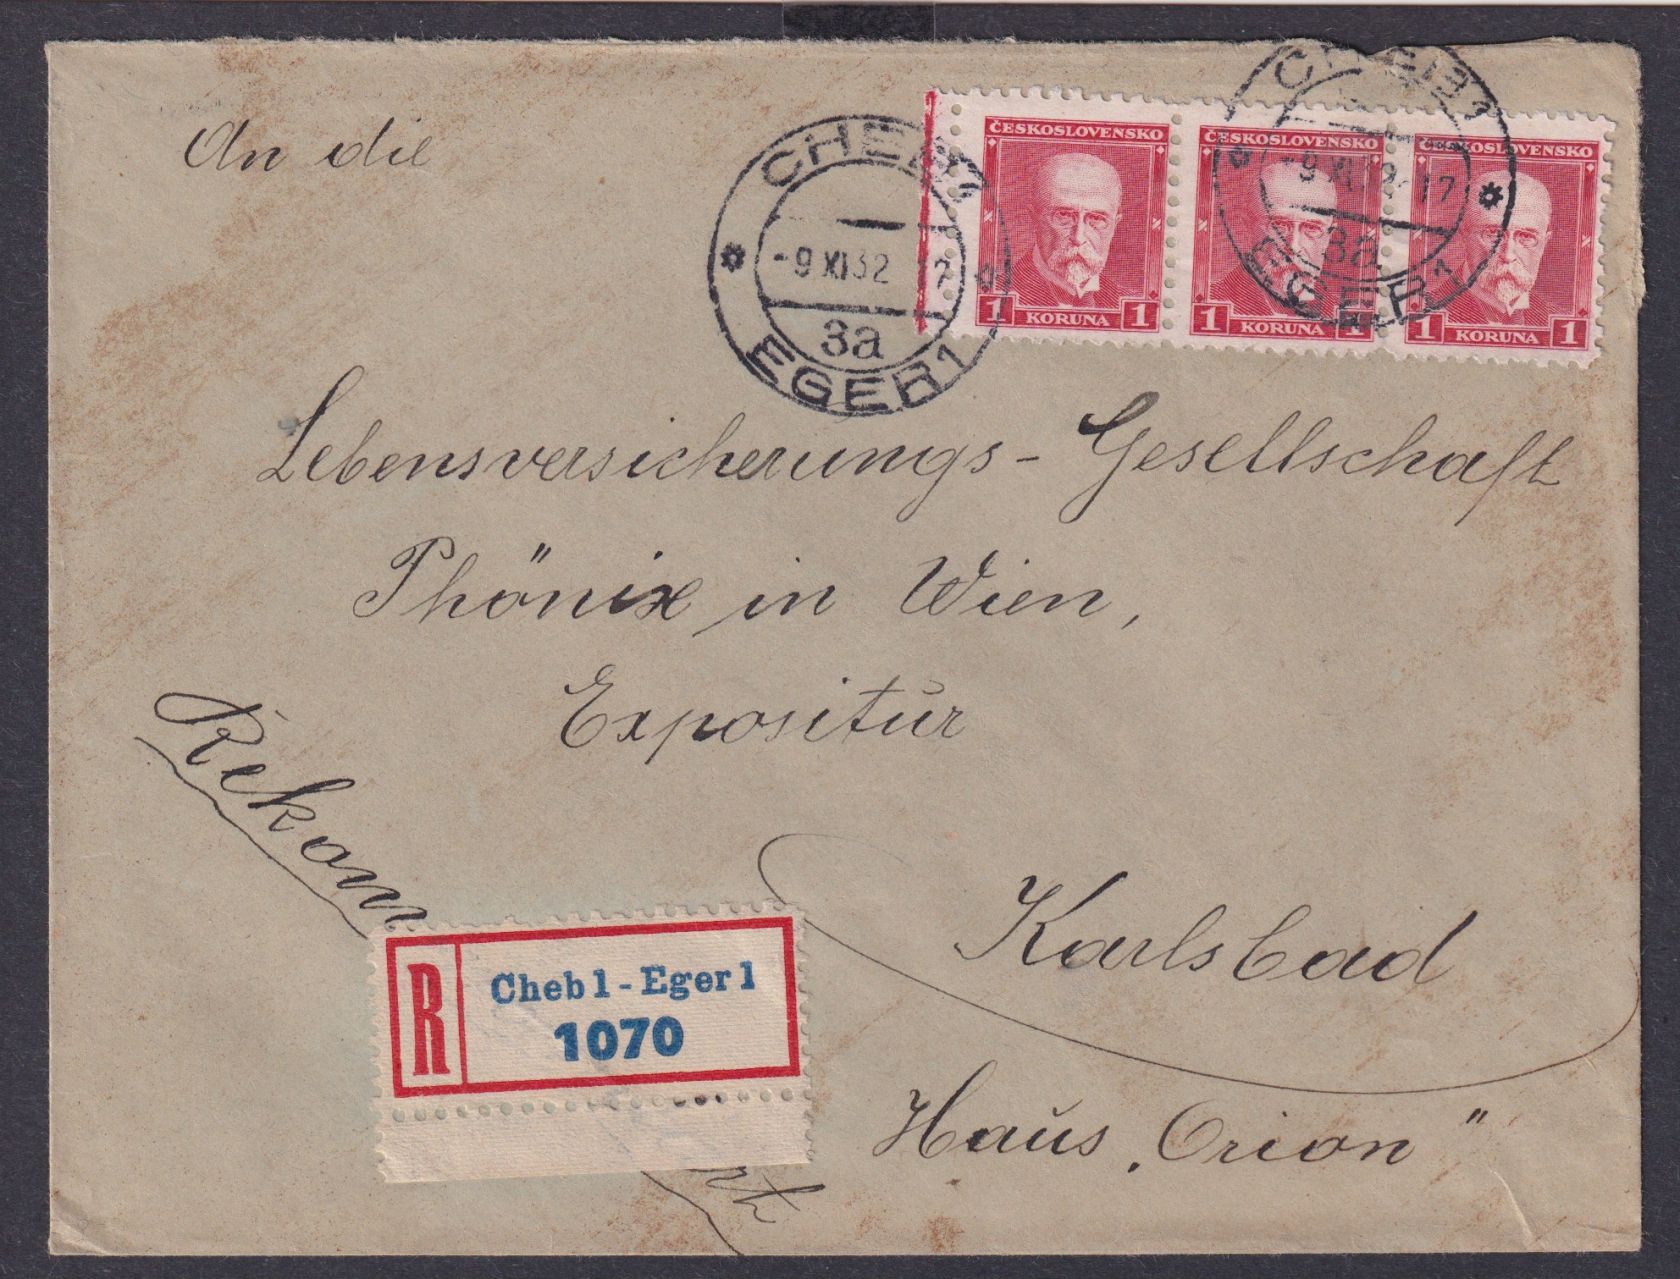 An die
ČESKOSLOVENSKO
1 KORUNA 1
ČESKOSLOVENSKO
1 KORUNA 1
ČESKOSLOVENSKO
1 KORUNA 1
CHEB 1
-9 XI 32 17
3a
EGER 1
CHEB 1
-9 XI 32 17
3a
EGER 1
Lebensversicherungs-Gesellschaft
Phönix in Wien,
Expositŭr
Rekom
Karlsbad
R
Cheb 1 - Eger 1
1070
Haŭs „Orion"